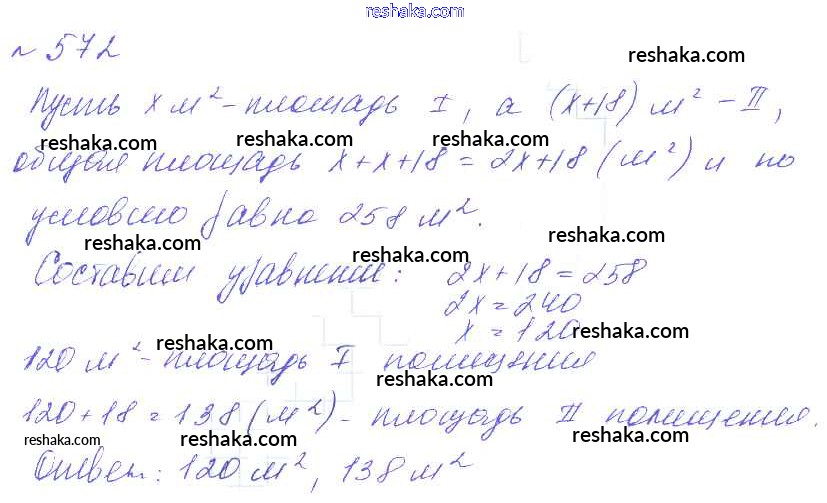 reshaka.com
№ 572
reshaka.com
Пусть x м² - площадь I, а (x+18) м² - II,
reshaka.com reshaka.com reshaka.com
общая площадь x+x+18 = 2x+18 (м²) и по
reshaka.com
условию равно 258 м².
reshaka.com reshaka.com
Составим уравнение: 2x+18=258
reshaka.com
2x=240
x=120
reshaka.com reshaka.com
120 м² - площадь I помещения
reshaka.com
120+18=138 (м²) - площадь II помещения.
reshaka.com reshaka.com reshaka.com
Ответ: 120 м², 138 м²
reshaka.com